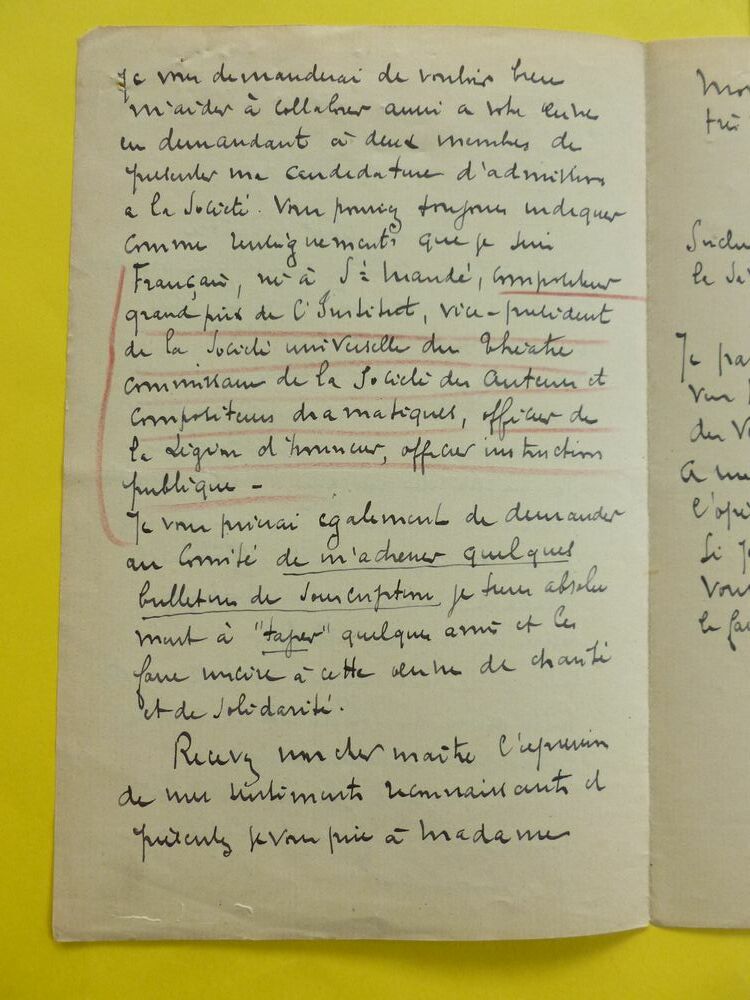 Je vous demanderai de vouloir bien
m'aider à collaborer aussi a votre œuvre
en demandant à deux membres de
présenter ma candidature d'admission
a la Société. Vous pouvez toujours indiquer
comme renseignements que je suis
Français, né à St Mandé, compositeur
grand prix de l'Institut, vice-président
de la Société universelle du Théatre
commissaire de la Société des Auteurs et
compositeurs dramatiques, officier de
la Légion d'honneur, officier instruction
publique -
Je vous prierai également de demander
au Comité de m'adresser quelques
bulletins de souscription je tiens absolu
ment à "taper" quelques amis et les
faire inscrire à cette œuvre de charité
et de solidarité.
Recevez mon cher maître l'expression
de mes sentiments reconnaissants et
présentez je vous prie à Madame
Mon
très
la
Je
vous
du
A
l'opé
Si
Vous
le